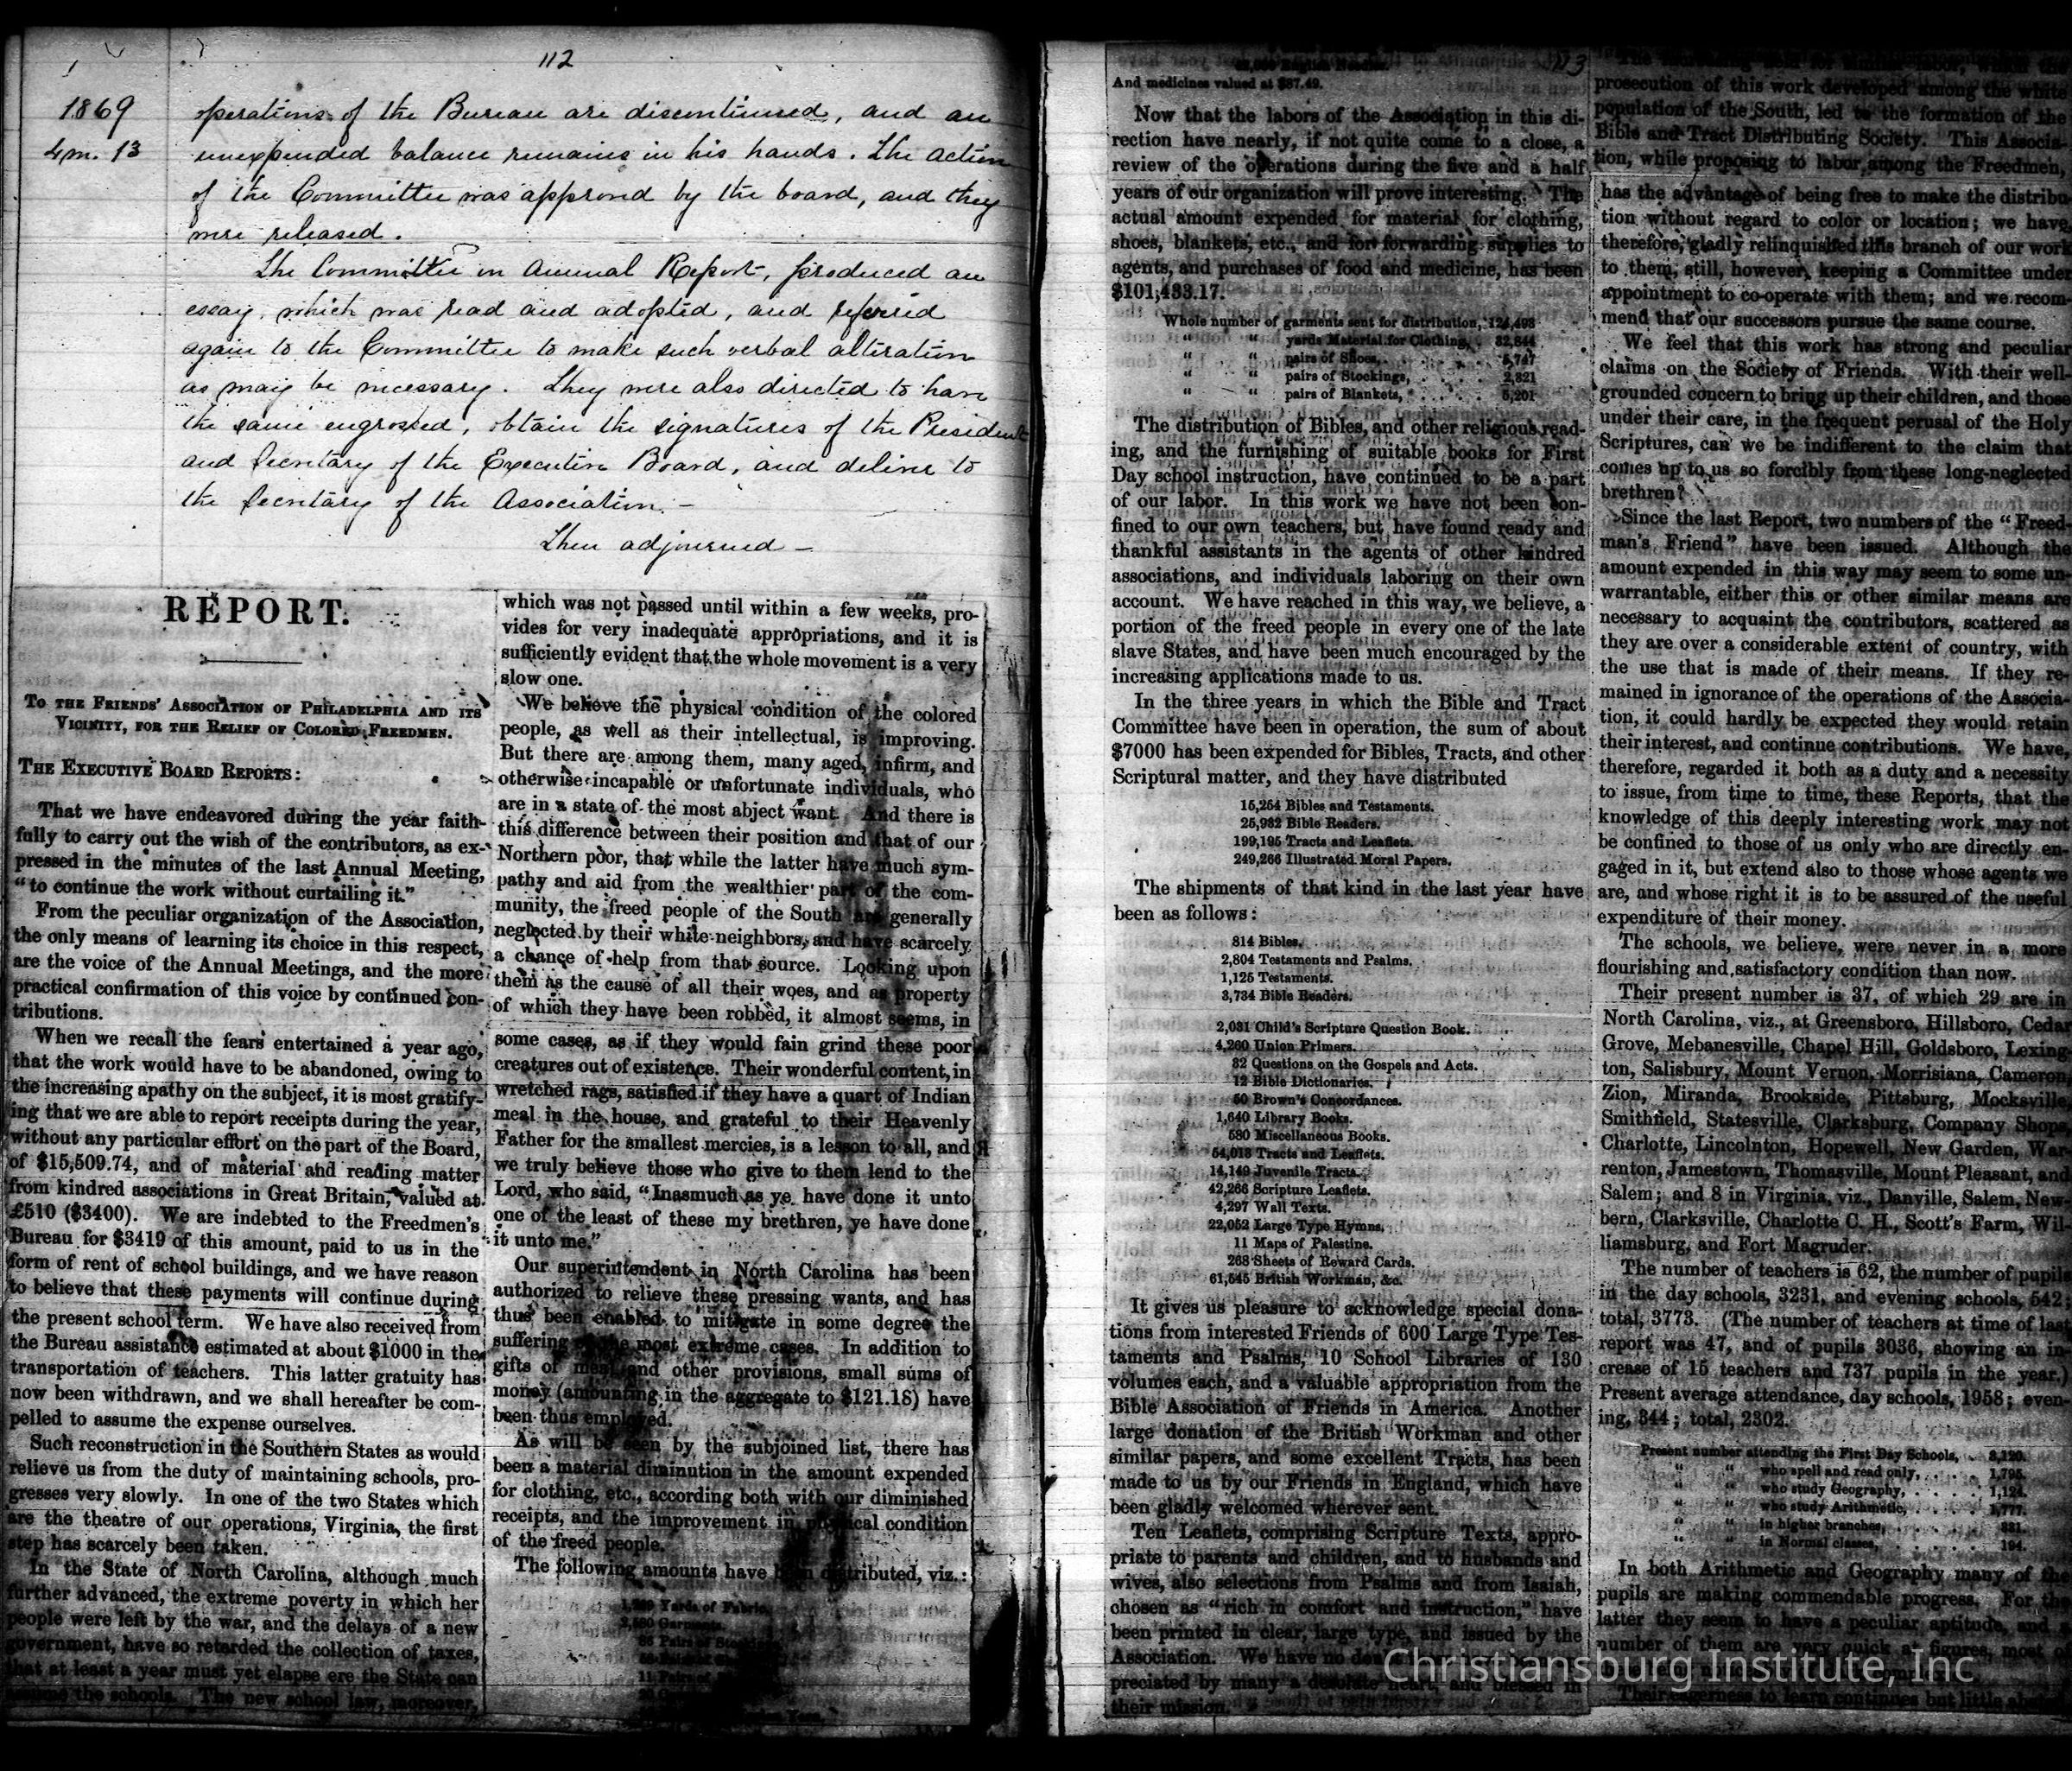 112
1869
4m. 13
operations of the Bureau are discontinued, and an
unexpended balance remains in his hands. The action
of the Committee was approved by the board, and they
were released.
The Committee on Annual Report, produced an
essay, which was read and adopted, and referred
again to the Committee to make such verbal alteration
as may be necessary. They were also directed to have
the same engrossed, obtain the signatures of the President
and Secretary of the Executive Board, and deliver to
the Secretary of the Association. —
Then adjourned —
REPORT.
To the Friends' Association of Philadelphia and its
Vicinity, for the Relief of Colored Freedmen.
The Executive Board Reports:
That we have endeavored during the year faith-
fully to carry out the wish of the contributors, as ex-
pressed in the minutes of the last Annual Meeting,
“to continue the work without curtailing it.”
From the peculiar organization of the Association,
the only means of learning its choice in this respect,
are the voice of the Annual Meetings, and the more
practical confirmation of this voice by continued con-
tributions.
When we recall the fears entertained a year ago,
that the work would have to be abandoned, owing to
the increasing apathy on the subject, it is most gratify-
ing that we are able to report receipts during the year,
without any particular effort on the part of the Board,
of $15,509.74, and of material and reading matter
from kindred associations in Great Britain, valued at
£510 ($3400). We are indebted to the Freedmen's
Bureau for $3419 of this amount, paid to us in the
form of rent of school buildings, and we have reason
to believe that these payments will continue during
the present school term. We have also received from
the Bureau assistance estimated at about $1000 in the
transportation of teachers. This latter gratuity has
now been withdrawn, and we shall hereafter be com-
pelled to assume the expense ourselves.
Such reconstruction in the Southern States as would
relieve us from the duty of maintaining schools, pro-
gresses very slowly. In one of the two States which
are the theatre of our operations, Virginia, the first
step has scarcely been taken.
In the State of North Carolina, although much
further advanced, the extreme poverty in which her
people were left by the war, and the delays of a new
government, have so retarded the collection of taxes,
that at least a year must yet elapse ere the State can
the schools. The new school law, moreover,
which was not passed until within a few weeks, pro-
vides for very inadequate appropriations, and it is
sufficiently evident that the whole movement is a very
slow one.
We believe the physical condition of the colored
people, as well as their intellectual, is improving.
But there are among them, many aged, infirm, and
otherwise incapable or unfortunate individuals, who
are in a state of the most abject want. And there is
this difference between their position and that of our
Northern poor, that while the latter have much sym-
pathy and aid from the wealthier part of the com-
munity, the freed people of the South are generally
neglected by their white neighbors, and have scarcely
a chance of help from that source. Looking upon
them as the cause of all their woes, and as property
of which they have been robbed, it almost seems, in
some cases, as if they would fain grind these poor
creatures out of existence. Their wonderful content, in
wretched rags, satisfied if they have a quart of Indian
meal in the house, and grateful to their Heavenly
Father for the smallest mercies, is a lesson to all, and
we truly believe those who give to them lend to the
Lord, who said, “Inasmuch as ye have done it unto
one of the least of these my brethren, ye have done
it unto me.”
Our superintendent in North Carolina has been
authorized to relieve these pressing wants, and has
thus been enabled to mitigate in some degree the
suffering most extreme cases. In addition to
gifts of meal and other provisions, small sums of
money (amounting in the aggregate to $121.18) have
been thus employed.
As will be seen by the subjoined list, there has
been a material diminution in the amount expended
for clothing, etc., according both with our diminished
receipts, and the improvement in physical condition
of the freed people.
The following amounts have been distributed, viz.:
Yards of Fabric
Garments.
Pairs of
11 Pairs of
113
And medicines valued at $87.49.
Now that the labors of the Association in this di-
rection have nearly, if not quite come to a close, a
review of the operations during the five and a half
years of our organization will prove interesting. The
actual amount expended for material for clothing,
shoes, blankets, etc., and for forwarding supplies to
agents, and purchases of food and medicine, has been
$101,433.17.
Whole number of garments sent for distribution, 124,498
“ “ yards Material for Clothing, 32,844
“ “ pairs of Shoes, 5,747
“ “ pairs of Stockings, 2,821
“ “ pairs of Blankets, 5,201
The distribution of Bibles, and other religious read-
ing, and the furnishing of suitable books for First
Day school instruction, have continued to be a part
of our labor. In this work we have not been con-
fined to our own teachers, but have found ready and
thankful assistants in the agents of other kindred
associations, and individuals laboring on their own
account. We have reached in this way, we believe, a
portion of the freed people in every one of the late
slave States, and have been much encouraged by the
increasing applications made to us.
In the three years in which the Bible and Tract
Committee have been in operation, the sum of about
$7000 has been expended for Bibles, Tracts, and other
Scriptural matter, and they have distributed
15,254 Bibles and Testaments.
25,982 Bible Readers.
199,195 Tracts and Leaflets.
249,266 Illustrated Moral Papers.
The shipments of that kind in the last year have
been as follows:
814 Bibles.
2,804 Testaments and Psalms.
1,125 Testaments.
3,734 Bible Readers.
2,031 Child's Scripture Question Book.
4,260 Union Primers.
82 Questions on the Gospels and Acts.
12 Bible Dictionaries.
50 Brown's Concordances.
1,640 Library Books.
580 Miscellaneous Books.
54,013 Tracts and Leaflets.
14,149 Juvenile Tracts.
42,266 Scripture Leaflets.
4,297 Wall Texts.
22,052 Large Type Hymns.
11 Maps of Palestine.
268 Sheets of Reward Cards.
61,545 British Workman, &c.
It gives us pleasure to acknowledge special dona-
tions from interested Friends of 600 Large Type Tes-
taments and Psalms, 10 School Libraries of 130
volumes each, and a valuable appropriation from the
Bible Association of Friends in America. Another
large donation of the British Workman and other
similar papers, and some excellent Tracts, has been
made to us by our Friends in England, which have
been gladly welcomed wherever sent.
Ten Leaflets, comprising Scripture Texts, appro-
priate to parents and children, and to husbands and
wives, also selections from Psalms and from Isaiah,
chosen as “rich in comfort and instruction,” have
been printed in clear, large type, and issued by the
Association. We have no
preciated by many a desolate heart, and blessed in
their mission.
prosecution of this work developed among the white
population of the South, led to the formation of the
Bible and Tract Distributing Society. This Associa-
tion, while proposing to labor among the Freedmen,
has the advantage of being free to make the distribu
tion without regard to color or location; we have
therefore, gladly relinquished this branch of our work
to them, still, however, keeping a Committee under
appointment to co-operate with them; and we recom
mend that our successors pursue the same course.
We feel that this work has strong and peculiar
claims on the Society of Friends. With their well-
grounded concern to bring up their children, and those
under their care, in the frequent perusal of the Holy
Scriptures, can we be indifferent to the claim that
comes up to us so forcibly from these long-neglected
brethren?
Since the last Report, two numbers of the “Freed
man's Friend” have been issued. Although the
amount expended in this way may seem to some un-
warrantable, either this or other similar means are
necessary to acquaint the contributors, scattered as
they are over a considerable extent of country, with
the use that is made of their means. If they re-
mained in ignorance of the operations of the Associa-
tion, it could hardly be expected they would retain
their interest, and continue contributions. We have,
therefore, regarded it both as a duty and a necessity
to issue, from time to time, these Reports, that the
knowledge of this deeply interesting work may not
be confined to those of us only who are directly en-
gaged in it, but extend also to those whose agents we
are, and whose right it is to be assured of the useful
expenditure of their money.
The schools, we believe, were never in a more
flourishing and satisfactory condition than now.
Their present number is 37, of which 29 are in
North Carolina, viz., at Greensboro, Hillsboro, Cedar
Grove, Mebanesville, Chapel Hill, Goldsboro, Lexing-
ton, Salisbury, Mount Vernon, Morrisiana, Cameron
Zion, Miranda, Brookside, Pittsburg, Mocksville,
Smithfield, Statesville, Clarksburg, Company Shops,
Charlotte, Lincolnton, Hopewell, New Garden, War-
renton, Jamestown, Thomasville, Mount Pleasant, and
Salem; and 8 in Virginia, viz., Danville, Salem, New
bern, Clarksville, Charlotte C. H., Scott's Farm, Wil-
liamsburg, and Fort Magruder.
The number of teachers is 62, the number of pupils
in the day schools, 3231, and evening schools, 542;
total, 3773. (The number of teachers at time of last
report was 47, and of pupils 3036, showing an in-
crease of 15 teachers and 737 pupils in the year.)
Present average attendance, day schools, 1958; even-
ing, 344; total, 2302.
Present number attending the First Day Schools, 3,120.
“ “ who spell and read only, 1,795.
“ “ who study Geography, 1,124.
“ “ who study Arithmetic, 1,777.
“ “ in higher branches, 331.
“ “ in Normal classes, 194.
In both Arithmetic and Geography many of the
pupils are making commendable progress. For the
latter they seem to have a peculiar aptitude, and a
number of them are very quick at figures, most
Their eagerness to learn continues but little
Christiansburg Institute, Inc